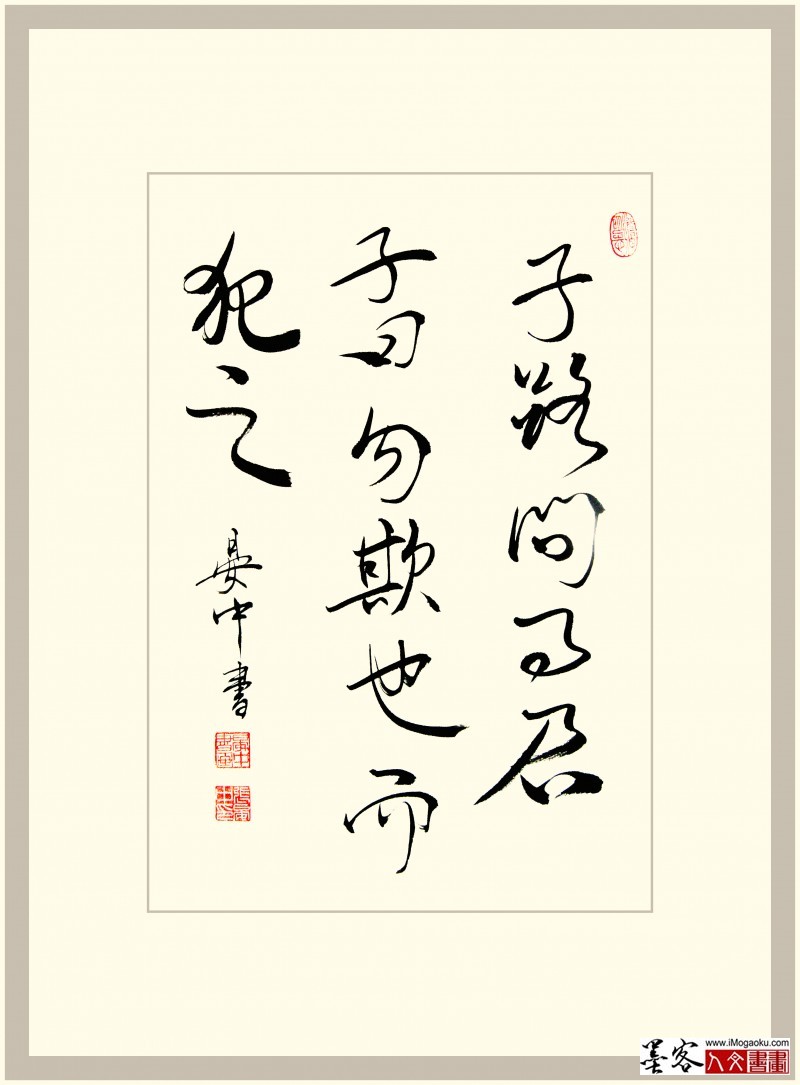 子路问事君
子曰勿欺也而
犯之
晏中書
墨客
www.iMogaoku.com
人文書畫